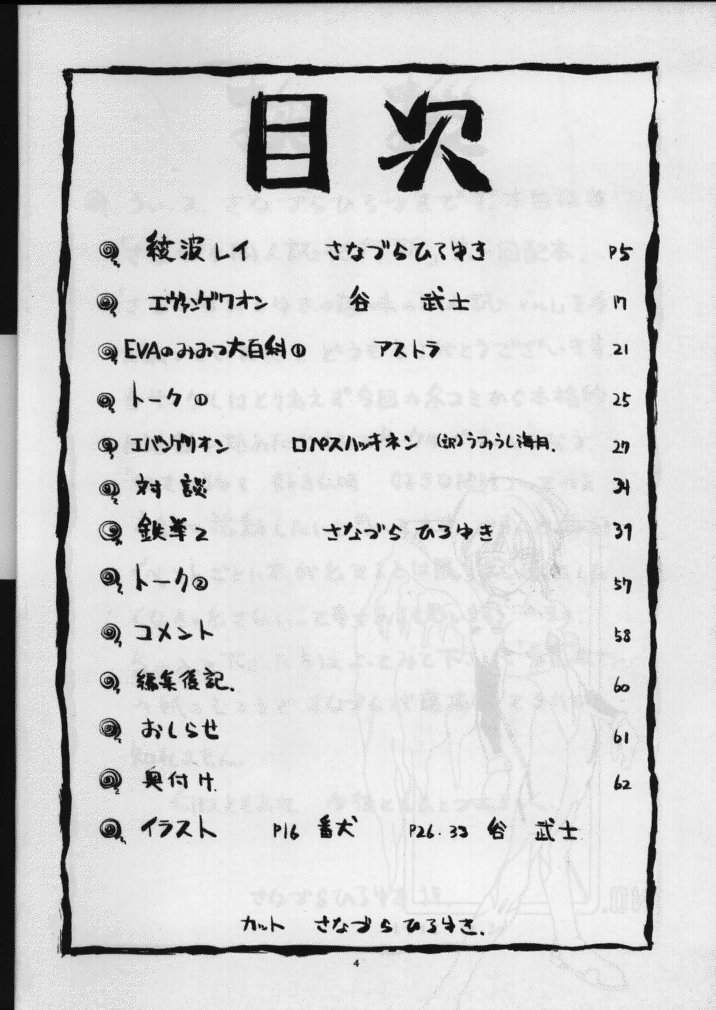 目次
綾波レイ さなづらひろゆき P5
エヴァンゲリオン 谷 武士 17
EVAのみみつ大百科① アストラ 21
トーク① 25
エバンゲリオン ロペスハッキネン (訳)うみうし海月. 27
対談 34
鉄拳2 さなづら ひろゆき 37
トーク② 57
コメント 58
編集後記. 60
おしらせ 61
奥付け. 62
イラスト P16 番犬 P26.33 谷 武士
カット さなづら ひろゆき.
4